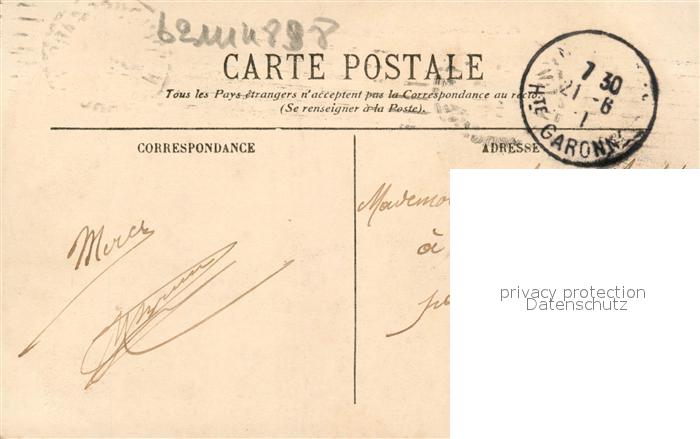 CARTE POSTALE
Tous les Pays étrangers n'acceptent pas la Correspondance au recto
(Se renseigner à la Poste).
7 30
21 - 6
HTE GARONNE
CORRESPONDANCE
ADRESSE
Merci
Mademoi
à
privacy protection
Datenschutz